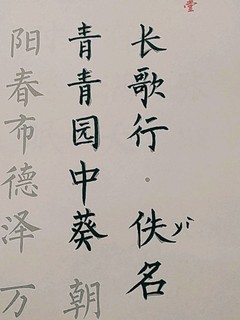 长歌行·佚名
yì
青青园中葵 朝
阳春布德泽 万